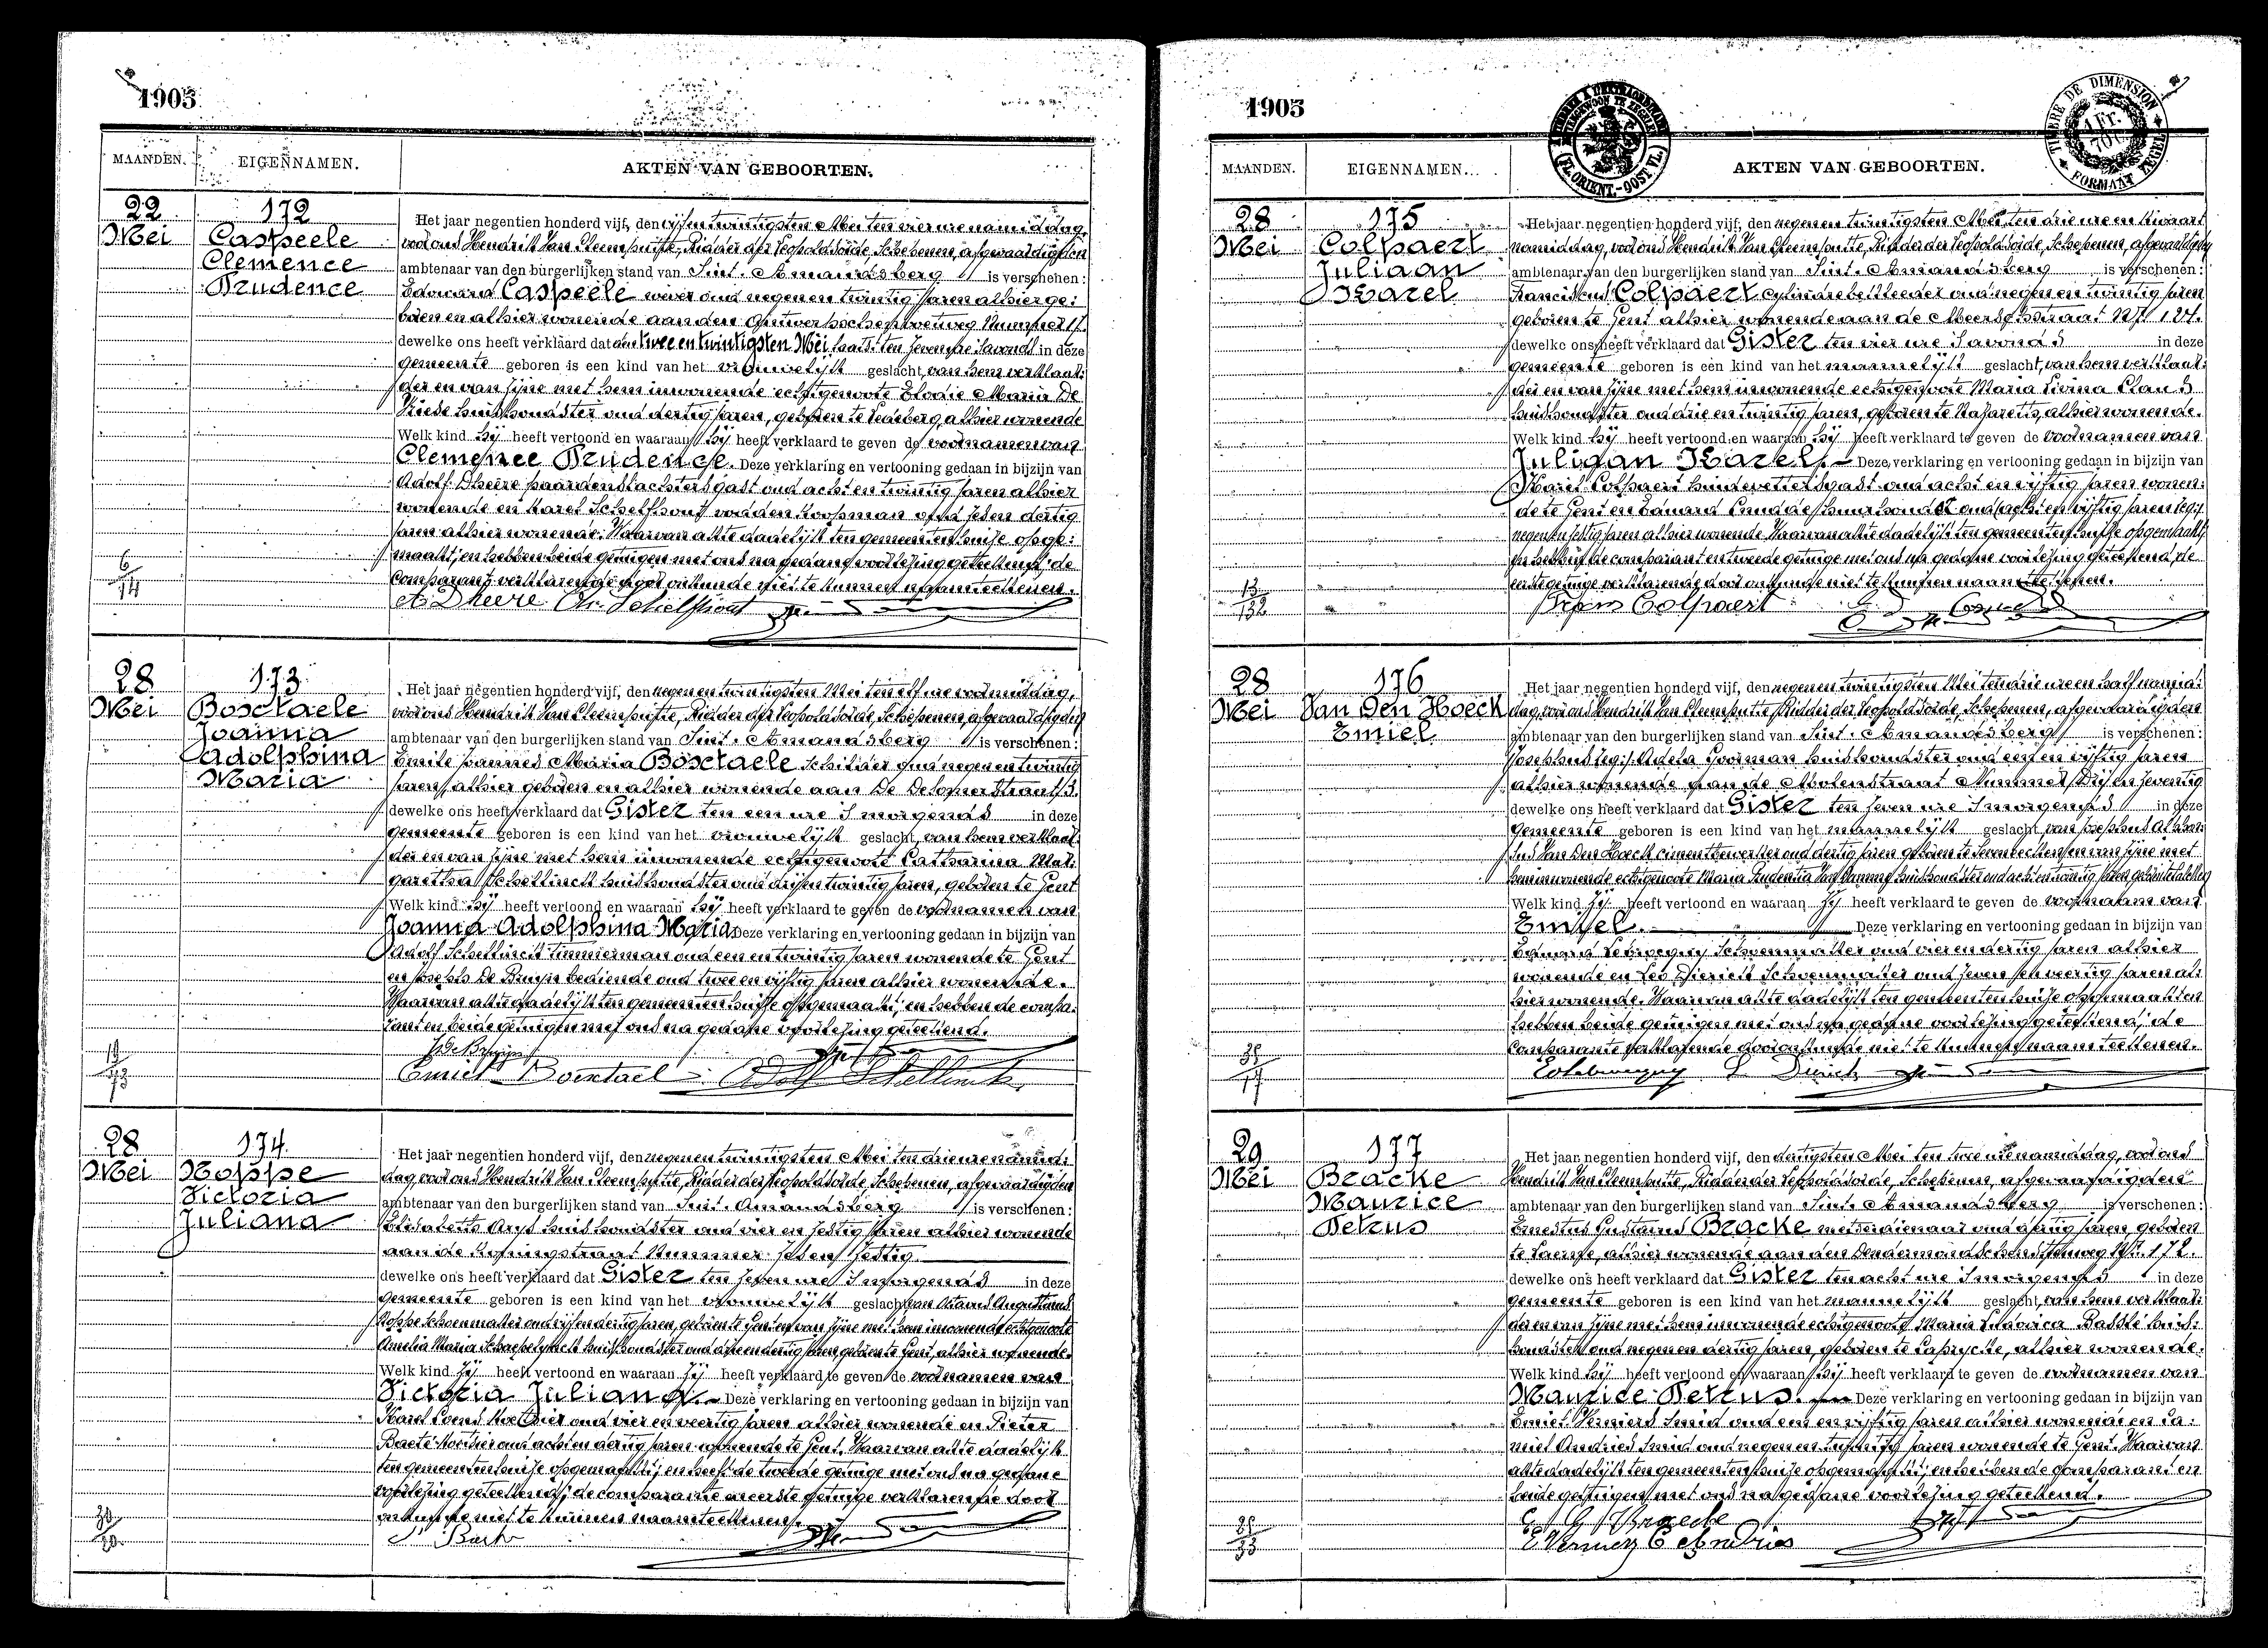 1905
MAANDEN. EIGENNAMEN. AKTEN VAN GEBOORTEN.
22 Mei
172
Caspeele
Clemence
Prudence
6/14
Het jaar negentien honderd vijf, den vijfentwintigsten Mei ten vier ure namiddag,
voor ons Hendrik Van Cleemputte, Ridder der Leopoldsorde, Schepenen, afgevaardigden
ambtenaar van den burgerlijken stand van Sint-Amandsberg is verschenen:
Edouard Caspeele wever oud negenentwintig jaren alhier ge:
boren en alhier wonende aan den Antwerpschensteenweg Nummer 17.
dewelke ons heeft verklaard dat den tweeentwintigsten Mei laatst ten zeven ure savonds in deze
gemeente geboren is een kind van het vrouwelijk geslacht, van hem verklaar:
der en van zijne met hem inwonende echtgenoote Elodie Maria De
huishoudster oud dertig jaren, geboren te Ledeberg, alhier wonende
Welk kind hij heeft vertoond en waaraan hij heeft verklaard te geven de voornamen van
Clemence Prudence. Deze verklaring en vertooning gedaan in bijzijn van
Adolf Dheere paardenslachtersgast oud achtentwintig jaren alhier
wonende en Karel Schelfhout voddenkoopman oud zesendertig
jaren alhier wonende. Waarvan akte dadelijk ten gemeentenhuize opge:
maakt, en hebben beide getuigen met ons na gedane voorlezing geteekend, de
comparant verklarende door onkunde niet te kunnen naamteekenen.
A. Dheere Ch. Schelfhout
28 Mei
173
Bosctaele
Joanna
Adolphina
Maria
19/73
Het jaar negentien honderd vijf, den negenentwintigsten Mei ten elf ure voormiddag,
voor ons Hendrik Van Cleemputte, Ridder der Leopoldsorde, Schepenen, afgevaardigden
ambtenaar van den burgerlijken stand van Sint-Amandsberg is verschenen:
Emile Joannes Maria Bosctaele schilder oud negenentwintig
jaren, alhier geboren en alhier wonende aan De Delosnerstraat 3.
dewelke ons heeft verklaard dat Gister ten een ure 's morgends in deze
gemeente geboren is een kind van het vrouwelijk geslacht, van hem verklaar:
der en van zijne met hem inwonende echtgenoote Catharina Mar:
garetha Schellinck huishoudster oud drijentwintig jaren, geboren te Gent
Welk kind hij heeft vertoond en waaraan hij heeft verklaard te geven de voornamen van
Joanna Adolphina Maria Deze verklaring en vertooning gedaan in bijzijn van
Adolf Schellinck timmerman oud eenentwintig jaren wonende te Gent
en Josephs De Bruyn bediende oud tweeenvijftig jaren alhier wonende.
Waarvan akte dadelijk ten gemeentenhuize opgemaakt, en hebben de compa:
rant en beide getuigen met ons na gedane voorlezing geteekend.
J. De Bruyn
Emiel Boentael Adolf Schellinck
28 Mei
174
Hoppe
Victoria
Juliana
Het jaar negentien honderd vijf, den negenentwintigsten Mei ten drie ure namid:
dag, voor ons Hendrik Van Cleemputte, Ridder der Leopoldsorde, Schepenen, afgevaardigden
ambtenaar van den burgerlijken stand van Sint-Amandsberg is verschenen:
Elisabeth Arys huishoudster oud vierenzestig jaren alhier wonende
aan de Koningstraat Nummer Zesenzestig
dewelke ons heeft verklaard dat Gister ten zeven ure 's morgends in deze
gemeente geboren is een kind van het vrouwelijk geslacht, van Octavus Augustinus
Hoppe schoenmaker oud vijfendertig jaren, geboren te Gent en van zijne met hem inwonende echtgenoote
Amelia Maria Schaepelynck huishoudster oud drieendertig jaren geboren te Gent, alhier wonende.
Welk kind zij heeft vertoond en waaraan zij heeft verklaard te geven de voornamen van
Victoria Juliana. Deze verklaring en vertooning gedaan in bijzijn van
Karel Coens oud vierenveertig jaren alhier wonende en Pieter
Baete oud achtendertig jaren wonende te Gent. Waarvan akte dadelijk
ten gemeentenhuize opgemaakt, en heeft de tweede getuige met ons na gedane
voorlezing geteekend, de comparante en eerste getuige verklarende door
onkunde niet te kunnen naamteekenen.
1905
TIMBRE DE DIMENSION
1 Fr.
FORMAAT ZEGEL
(FL. ORIENT.-OOST VL.)
MAANDEN. EIGENNAMEN. AKTEN VAN GEBOORTEN.
28 Mei
175
Colpaert
Juliaan
Karel
13/132
Het jaar negentien honderd vijf, den negenentwintigsten Mei, ten drie ure en kwaart
namiddag, voor ons Hendrik Van Cleemputte, Ridder der Leopoldsorde, Schepenen, afgevaardigden
ambtenaar van den burgerlijken stand van Sint-Amandsberg is verschenen:
Franciscus Colpaert cylinderbekleeder oud negenentwintig jaren
geboren te Gent alhier wonende aan de Meerschstraat Nr 124.
dewelke ons heeft verklaard dat Gister ten vier ure 's avonds in deze
gemeente geboren is een kind van het mannelijk geslacht, van hem verklaar:
der en van zijne met hem inwonende echtgenoote Maria Livina Claus
huishoudster oud drieentwintig jaren, geboren te Nazareth, alhier wonende.
Welk kind hij heeft vertoond en waaraan hij heeft verklaard te geven de voornamen van
Juliaan Karel. Deze verklaring en vertooning gedaan in bijzijn van
Karel Colpaert huidevettersgast oud achtenvijftig jaren wonen:
de te Gent en Eduard huurhouder oud (achtenvijftig jaren leg:)
negenenzestig jaren alhier wonende. Waarvan akte dadelijk ten gemeentenhuize opgemaakt,
en hebben de comparant en tweede getuige met ons na gedane voorlezing geteekend, de
eerste getuige verklarende door onkunde niet te kunnen naamteekenen.
Frans Colpaert
28 Mei
176
Van Den Hoeck
Emiel
Het jaar negentien honderd vijf, den negenentwintigsten Mei ten drie ure en half namid:
dag, voor ons Hendrik Van Cleemputte, Ridder der Leopoldsorde, Schepenen, afgevaardigden
ambtenaar van den burgerlijken stand van Sint-Amandsberg is verschenen:
Josephus leg: Adela Goorman huishoudster oud eenenvijftig jaren
alhier wonende aan de Molenstraat Nummer Drijenzeventig
dewelke ons heeft verklaard dat Gister ten zeven ure 's morgends in deze
gemeente geboren is een kind van het mannelijk geslacht, van Josephus
Van Den Hoeck cimentbewerker oud dertig jaren geboren te en van zijne met
hem inwonende echtgenoote Maria Prudentia Van huishoudster oud achtentwintig jaren geboren te
Welk kind zij heeft vertoond en waaraan zij heeft verklaard te geven de voornaam van
Emiel. Deze verklaring en vertooning gedaan in bijzijn van
Eduard schoenmaker oud vierendertig jaren alhier
wonende en Leo Dierick schoenmaker oud zevenenveertig jaren al:
hier wonende. Waarvan akte dadelijk ten gemeentenhuize opgemaakt en
hebben beide getuigen met ons na gedane voorlezing geteekend, de
comparante verklarende door onkunde niet te kunnen naamteekenen.
29 Mei
177
Bracke
Maurice
Petrus
Het jaar negentien honderd vijf, den dertigsten Mei ten twee ure namiddag, voor ons
Hendrik Van Cleemputte, Ridder der Leopoldsorde, Schepenen, afgevaardigden
ambtenaar van den burgerlijken stand van Sint-Amandsberg is verschenen:
Ernestus Gustavus Bracke metserdienaar oud dertig jaren, geboren
te alhier wonende aan den Dendermondschensteenweg Nr. 172.
dewelke ons heeft verklaard dat Gister ten acht ure 's morgends in deze
gemeente geboren is een kind van het mannelijk geslacht, van hem verklaar:
der en van zijne met hem inwonende echtgenoote Maria Ludovica Bassle huis:
houdster oud negenendertig jaren, geboren te Caprycke, alhier wonende.
Welk kind hij heeft vertoond en waaraan hij heeft verklaard te geven de voornamen van
Maurice Petrus. Deze verklaring en vertooning gedaan in bijzijn van
Emiel Verniers smid oud eenenvijftig jaren alhier wonende en Ca:
miel Andries smid oud negenentwintig jaren wonende te Gent. Waarvan
akte dadelijk ten gemeentenhuize opgemaakt, en hebben de comparant en
beide getuigen met ons na gedane voorlezing geteekend.
E. G. Bracke
E Verniers C Andries